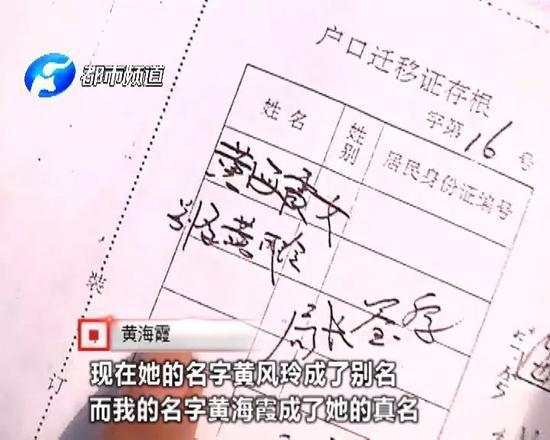 都市频道
户口迁移证存根
字第16号
姓名 性别 居民身份证编号
黄海霞 女
别名黄风玲
局长签字
装
订
黄海霞
现在她的名字黄风玲成了别名
而我的名字黄海霞成了她的真名